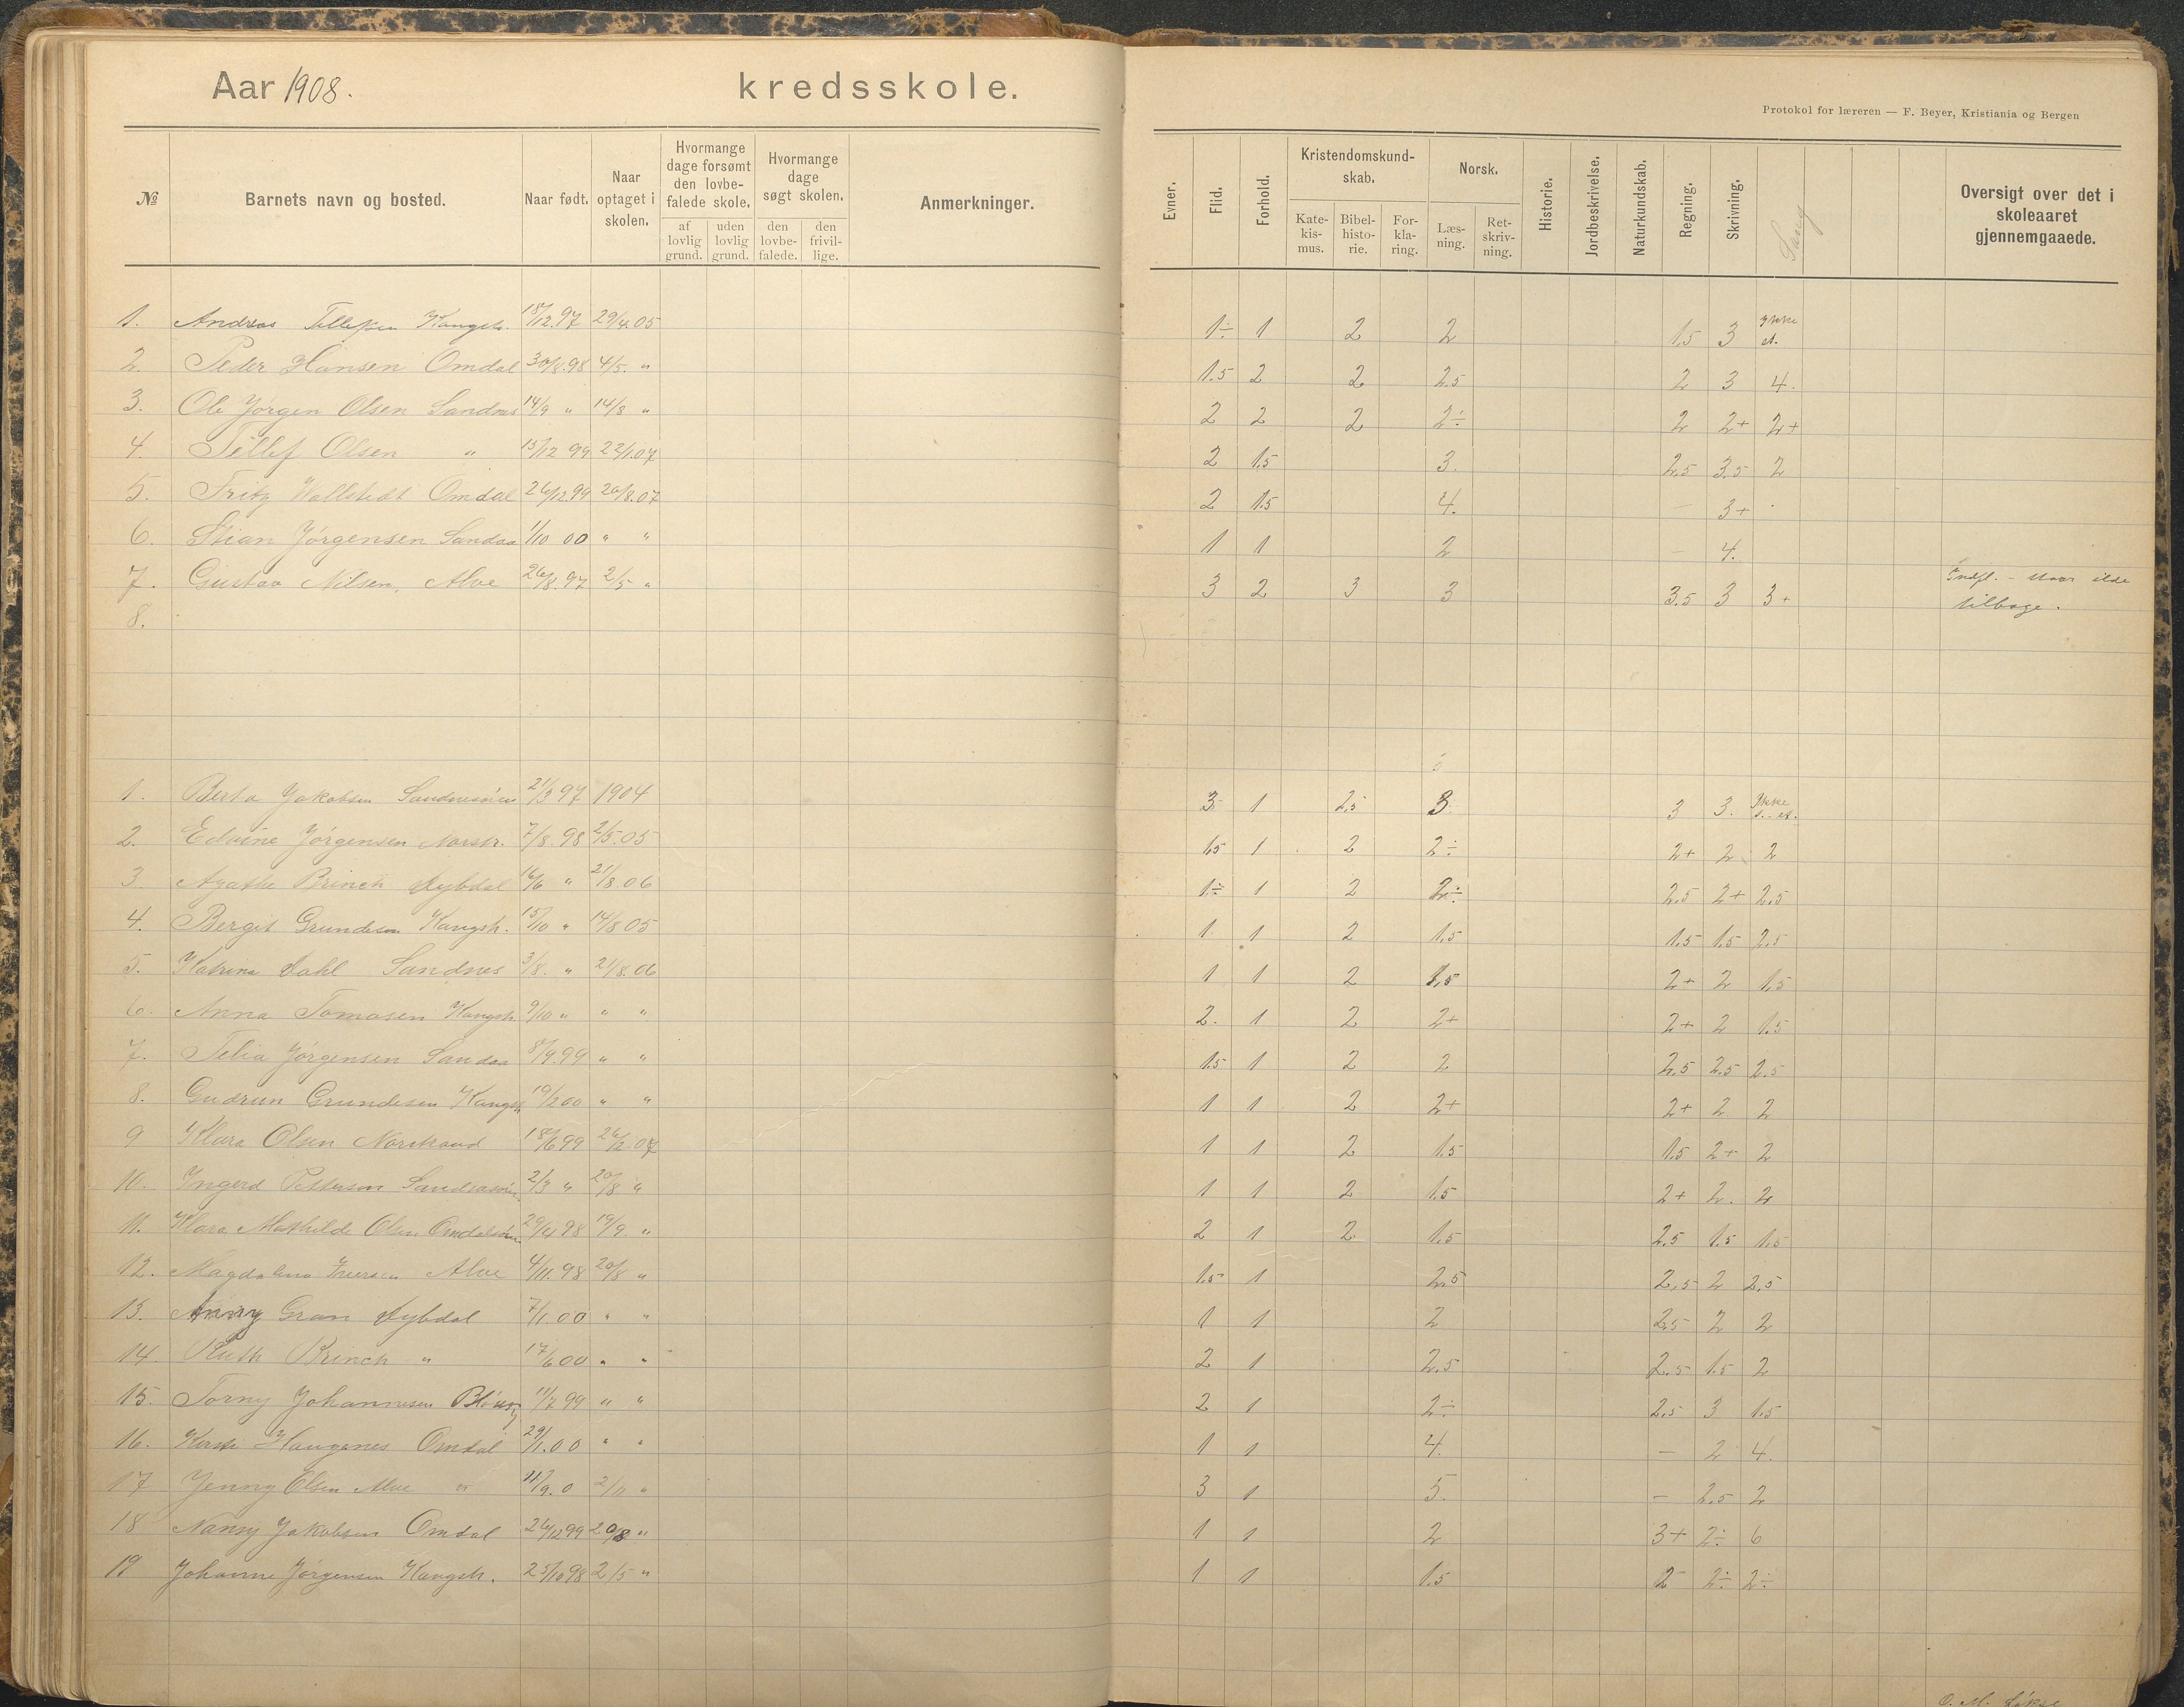 Aar 1908. kredsskole.
Protokol for læreren — F. Beyer, Kristiania og Bergen
№ Barnets navn og bosted. Naar født. Naar optaget i skolen. Hvormange dage forsømt den lovbefalede skole, af lovlig grund. uden lovlig grund. Hvormange dage søgt skolen. den lovbefalede. den frivillige. Anmerkninger.
Evner. Flid. Forhold. Kristendomskundskab. Katekismus. Bibelhistorie. Forklaring. Norsk. Læsning. Retskrivning. Historie. Jordbeskrivelse. Naturkundskab. Regning. Skrivning. Sang Oversigt over det i skoleaaret gjennemgaaede.
1. Andreas Tellefsen Kangsh. 18/12.97 29/4.05 1÷ 1 2 2 1.5 3 Ikke st.
2. Peder Hansen Omdal 30/8.98 4/5. " 1.5 2 2 2.5 2 3 4.
3. Ole Jørgen Olsen Sandnes 14/9 " 14/8 " 2 2 2 2÷ 2 2+ 2+
4. Tellef Olsen " 15/12 99 22/1.07 2 1.5 3. 2.5 3.5 2
5. Fritz Wallstedt Omdal 26/12.99 20/8.07 2 1.5 4. — 3+
6. Stian Jørgensen Sandaa 1/10 00 " " 1 1 2 — 4.
7. Gustav Nilsen, Alve 26/8.97 2/5 " 3 2 3 3 3.5 3 3+ Indfl. - staar ilde
tilbage.
8.
1. Berta Jakobsen 21/3 97 1904 3 1 2.5 3 3 3. Ikke st.
2. Edvine Jørgensen Norstr. 7/8.98 2/5.05 1.5 1 2 2÷ 2+ 2 2
3. Agathe Brinch Dybdal 16/6 " 21/8.06 1÷ 1 2 2÷ 2.5 2+ 2.5
4. Bergit Grundesen Kangsh. 15/10 " 14/8 05 1 1 2 1.5 1.5 1.5 2.5
5. Katrine Dahl Sandnes 3/8. " 21/8.06 1 1 2 1.5 2+ 2 1.5
6. Anna Tomasen Kangsh 9/10 " " " 2. 1 2 2+ 2+ 2 1.5
7. Telia Jørgensen Sandaa 8/9.99 " " 1.5 1 2 2 2.5 2.5 2.5
8. Gudrun Grundesen Kangsh 19/2 00 " " 1 1 2 2+ 2+ 2 2
9 Klara Olsen Norstrand 18/6 99 26/2.07 1 1 2 1.5 1.5 2+ 2
10. Ingerd Petterson 2/3 " 20/8 " 1 1 2 1.5 2+ 2. 2
11. Klara Mathilde Olsen 29/4 98 19/9. " 2 1 2 1.5 2.5 1.5 1.5
12. Magdalene Iversen Alve 4/11.98 20/8 " 1.5 1 2.5 2.5 2 2.5
13. Anny Gran Dybdal 7/1.00 " " 1 1 2 2.5 2 2
14. Ruth Brinch " 17/6 00 " " 2 1 2.5 2.5 1.5 2
15. Torny Johannesen 11/7 99 " " 2 1 2÷ 2.5 3 1.5
16. Kirsti Haugenes Omdal 29/1.00 " " 1 1 4. — 2 4.
17 Jenny Olsen Alve 11/9.0 2/11 " 3 1 5. — 2.5 2
18 Nanny Jakobsen Omdal 26/12 99 20/8 " 1 1 2 3+ 2÷ 6
19 Johanne Jørgensen Kangsh. 25/10 98 2/5 " 1 1 1.5 2 2÷ 2÷
O. M.